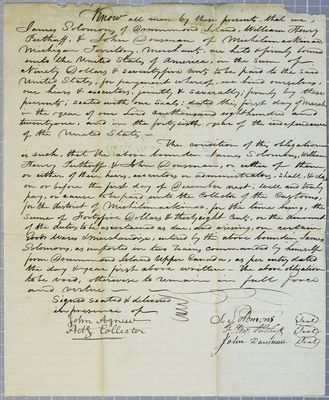 Know all men by these presents, that we,
James Solomons, of Drummond Island, William Henry
Puthuff, & John Dousman of Michilimackinac
Michigan Territory, Merchants, are held & firmly bound
unto the United States of America, in the Sum of
Ninety Dollars & seventyfive Cents to be paid to the said
United States, for payment whereof, we bind ourselves
our heirs & executors, jointly & severally, firmly by these
presents; sealed with our seals; dated this first day of March
in the year of our Lord one thousand eight hundred and
twentyone, and in the fortyfifth year of the independence
of the United States,
The condition of this obligation
is such, that if the above bounden James Solomons, William
Henry Puthuff & John Dousman, or either of them,
or either of their heirs, executors or administrators, shall, & do,
on or before the first day of December next, well and truly
pay, or cause to be paid unto the Collector of the Customs,
for the district of Michilimackinac, for the time being, the
Sum of Fortyfive Dollars & thirtyeight Cents, or the amount
of the duties to be ascertained as due, and arising, on certain
Goods wares & Merchandize, entered by the above bounden James
Solomons, as imported in two Trains, commanded by himself
from Drummond Island Upper Canada, as per entry dated
the day & year first above written — the above obligation
to be void, otherwise to remain in full force
and virtue —
Signed sealed & delivered
in presence of
John Agnew
Actg Collector
Solomons (Seal)
Wm H Puthuff (Seal)
John Dousman (Seal)